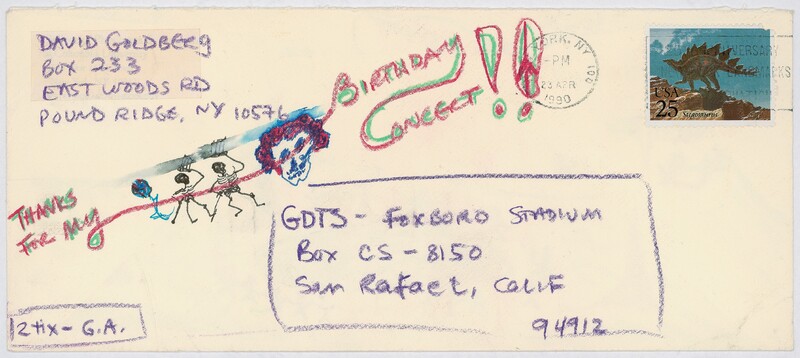 DAVID GOLDBERG
BOX 233
EAST WOODS RD
POUND RIDGE, NY 10576
THANKS
FOR MY
BIRTHDAY
CONCERT!!
YORK, NY 100
-PM
23 APR
1990
VERSARY
USA
25
Stegosaurus
GDTS - FOXBORO STADIUM
BOX CS - 8150
San Rafael, CALIF
94912
2 tix - G.A.